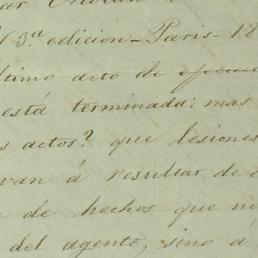 3ª edicion - Paris - 18
ltimo acto de
está terminada: mas
s actos? que lesiones
van á resultar de
de hechos que no
del agente, sino a